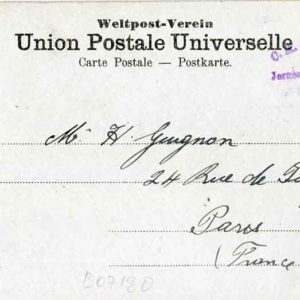 Weltpost-Verein
Union Postale Universelle
Carte Postale — Postkarte.
Mr H. Guignon
24 Rue de
Paris
(France